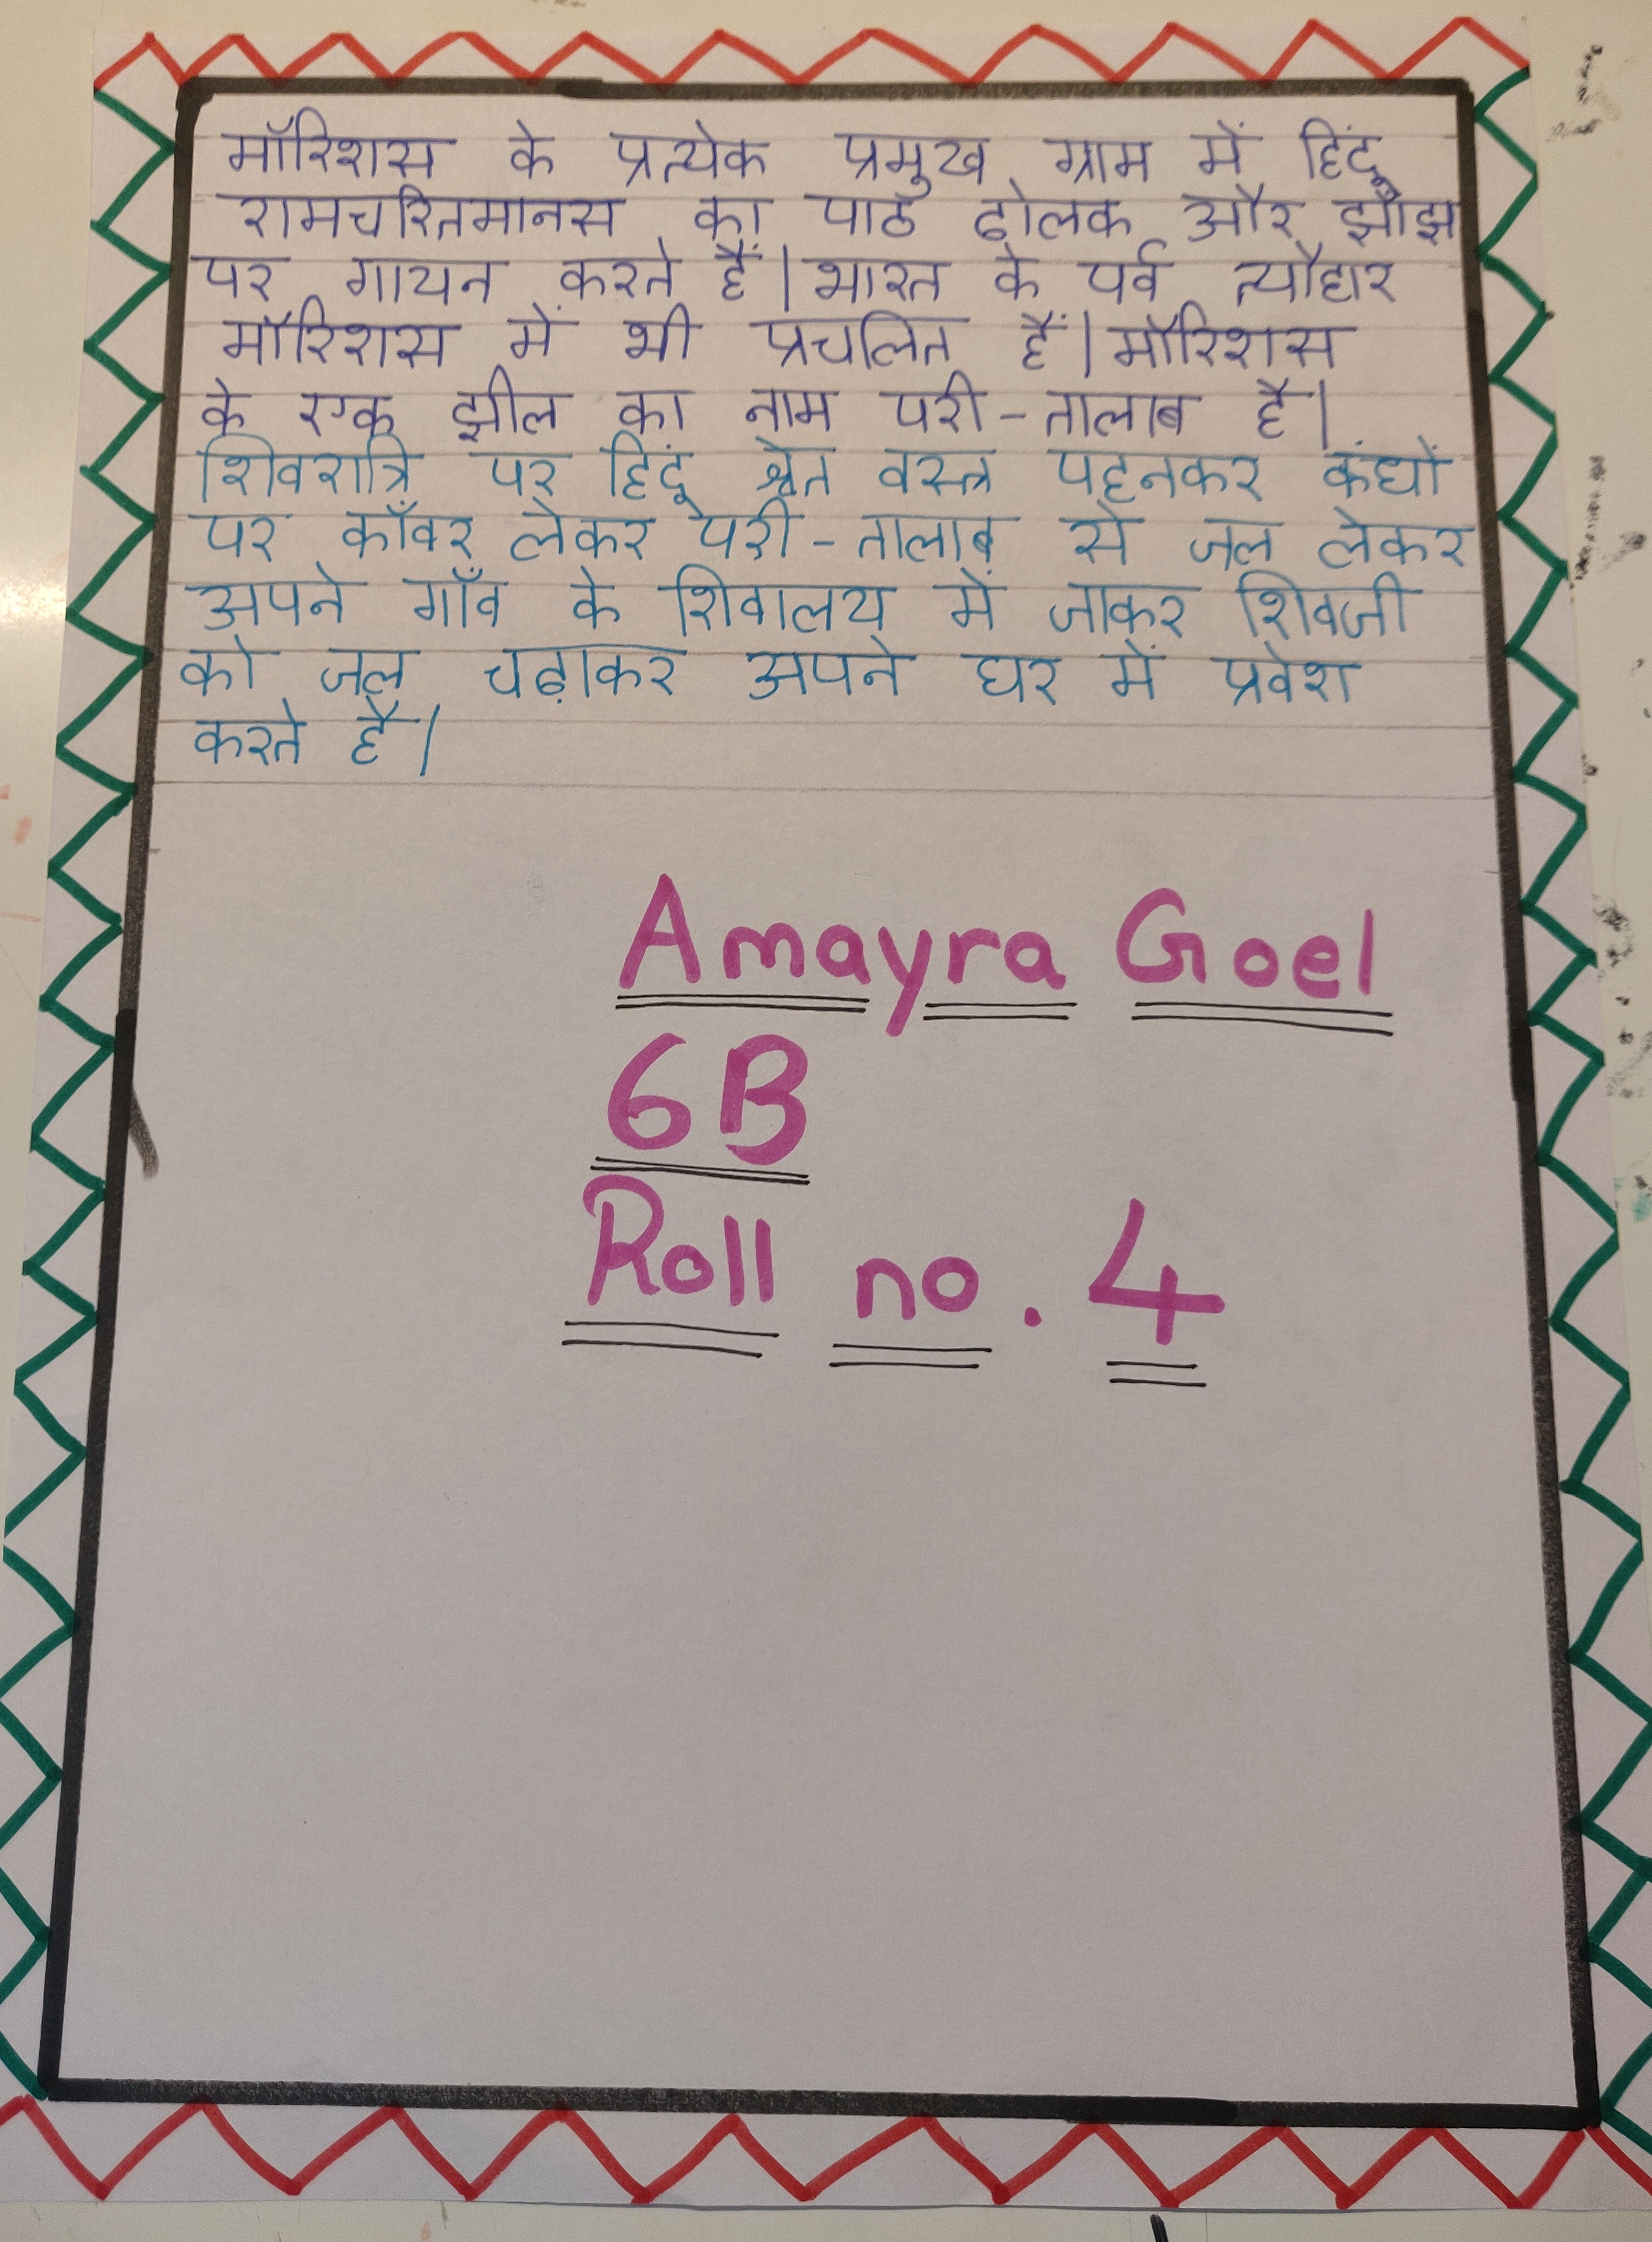 मॉरिशस के प्रत्येक प्रमुख ग्राम में हिंदू
रामचरितमानस का पाठ ढोलक और झाँझ
पर गायन करते हैं। भारत के पर्व त्यौहार
मॉरिशस में भी प्रचलित हैं। मॉरिशस
के एक झील का नाम परी-तालाब है।
शिवरात्रि पर हिंदू श्वेत वस्त्र पहनकर कंधों
पर काँवर लेकर परी-तालाब से जल लेकर
अपने गाँव के शिवालय में जाकर शिवजी
को जल चढ़ाकर अपने घर में प्रवेश
करते है।
Amayra Goel
6B
Roll no. 4